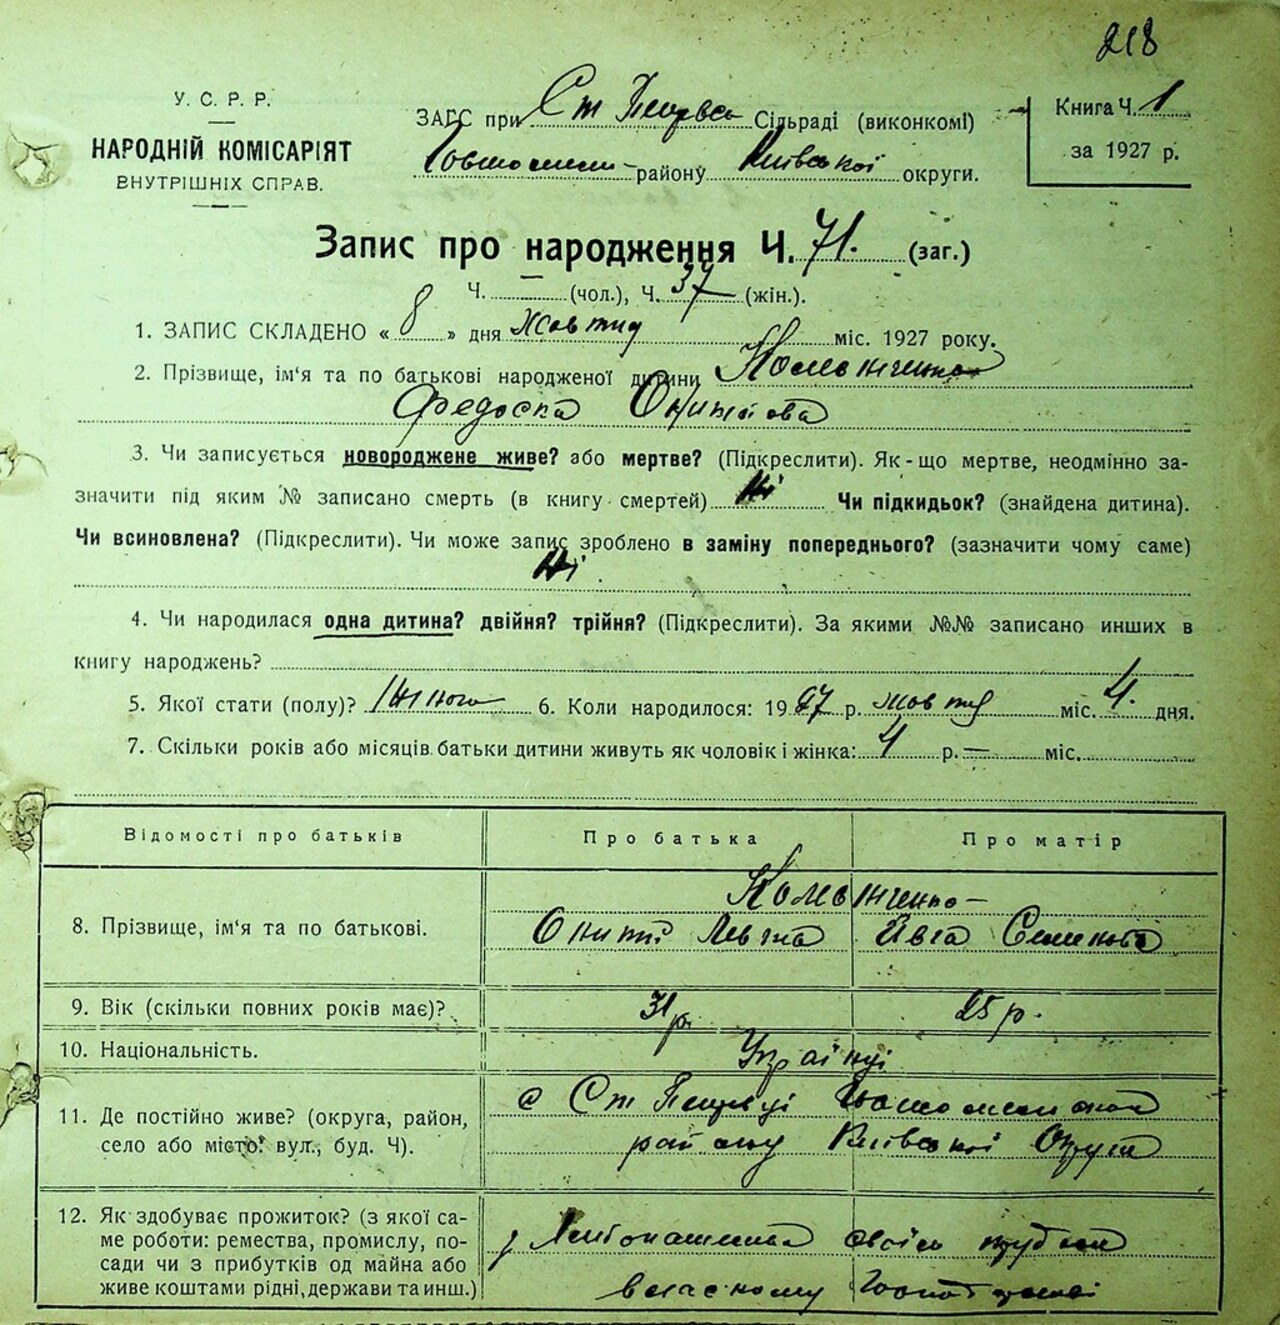 218
У. С. Р. Р.
НАРОДНІЙ КОМІСАРІЯТ
ВНУТРІШНІХ СПРАВ.
ЗАГС при Ст Петрівсь Сільраді (виконкомі)
району Київської округи.
Книга Ч. 1
за 1927 р.
Запис про народження Ч. 71. (заг.)
Ч. — (чол.), Ч. 37 (жін.).
1. ЗАПИС СКЛАДЕНО « 8 » дня Жовтня міс. 1927 року.
2. Прізвище, ім'я та по батькові народженої дитини
Федоска
3. Чи записується новороджене живе? або мертве? (Підкреслити). Як-що мертве, неодмінно за-
значити під яким № записано смерть (в книгу смертей) Ні Чи підкидьок? (знайдена дитина).
Чи всиновлена? (Підкреслити). Чи може запис зроблено в заміну попереднього? (зазначити чому саме)
Ні
4. Чи народилася одна дитина? двійня? трійня? (Підкреслити). За якими №№ записано инших в
книгу народжень?
5. Якої стати (полу)? Жіночо 6. Коли народилося: 1927 р. жовтня міс. 4. дня.
7. Скільки років або місяців батьки дитини живуть як чоловік і жінка: 4 р. — міс.
Відомості про батьків Про батька Про матір
8. Прізвище, ім'я та по батькові.
9. Вік (скільки повних років має)? 31 р. 25 р.
10. Національність. Українці
11. Де постійно живе? (округа, район, с Ст Петрівці
село або місто: вул., буд. Ч). району Київської Округи
12. Як здобуває прожиток? (з якої са-
ме роботи: ремества, промислу, по-
сади чи з прибутків од майна або
живе коштами рідні, держави та инш.)
з Хлібопашества своїм трудом
власному